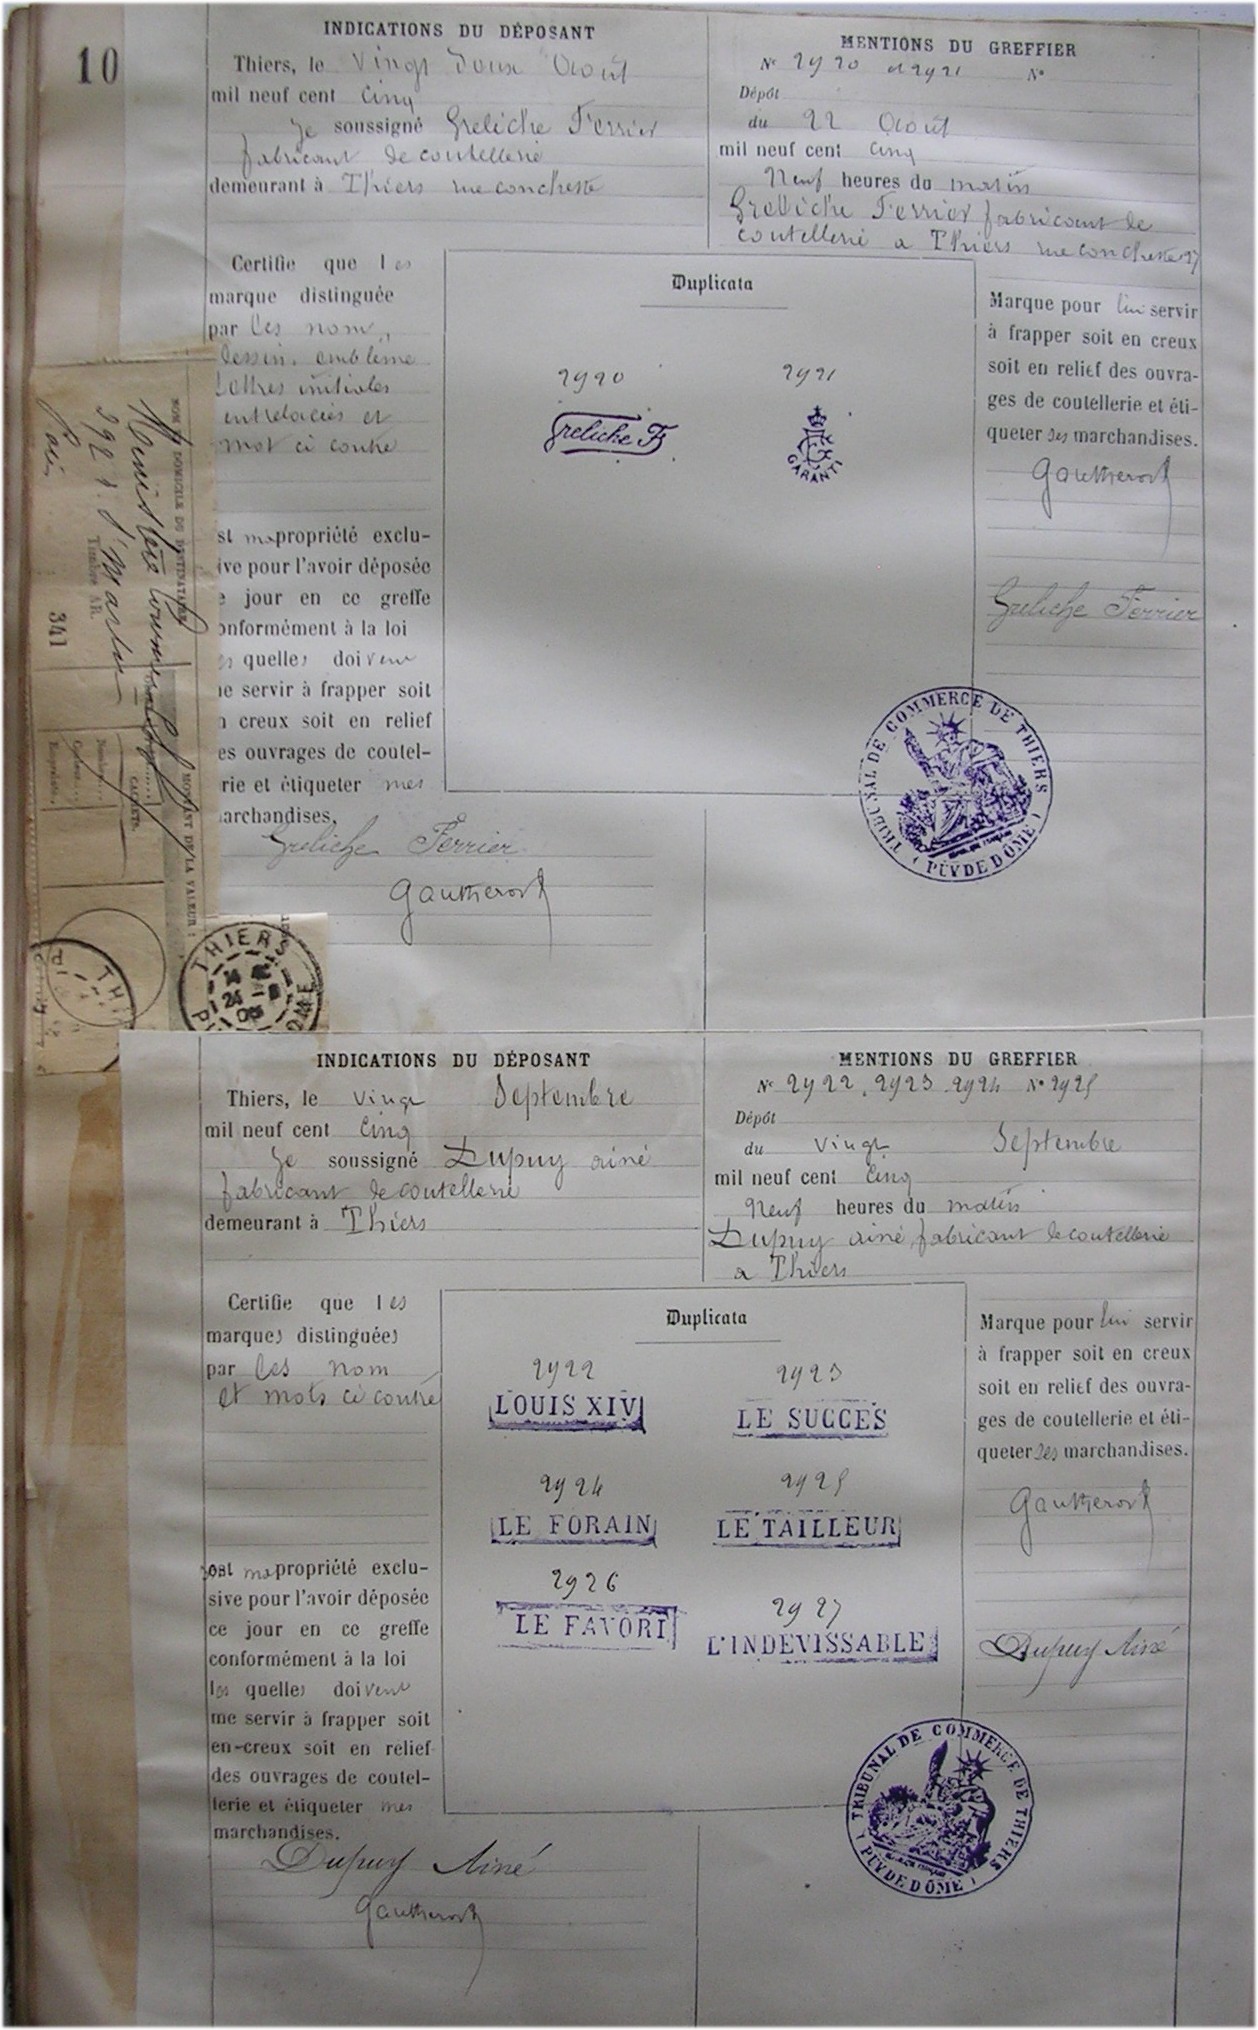 10
INDICATIONS DU DÉPOSANT
Thiers, le vingt deux Août
mil neuf cent cinq
Je soussigné Greliche Ferrier
fabricant de coutellerie
demeurant à Thiers rue conchette
MENTIONS DU GREFFIER
Nos 2920 et 2921 No
Dépôt
du 22 Août
mil neuf cent cinq
Neuf heures du matin
Greliche Ferrier fabricant de
coutellerie a Thiers rue conchette 27
Certifie que les
marque distinguée
par les nom,
dessin, emblême
Lettres initiales
entrelacées et
mot ci contre
st ma propriété exclu-
ive pour l'avoir déposée
e jour en ce greffe
onformément à la loi
es quelles doivent
ne servir à frapper soit
n creux soit en relief
es ouvrages de coutel-
rie et étiqueter mes
archandises.
Greliche Ferrier
Gautherot
Duplicata
2920 2921
Greliche F
GARANTI
Marque pour lui servir
à frapper soit en creux
soit en relief des ouvra-
ges de coutellerie et éti-
queter ses marchandises.
Gautherot
Greliche Ferrier
TRIBUNAL DE COMMERCE DE THIERS
(PUY DE DÔME)
NOM ET DOMICILE DU DESTINATAIRE
Timbre AR.
341
MONTANT DE LA VALEUR
THIERS
24 -8
05
INDICATIONS DU DÉPOSANT
Thiers, le vingt Septembre
mil neuf cent cinq
Je soussigné Dupuy ainé
fabricant de coutellerie
demeurant à Thiers
MENTIONS DU GREFFIER
Nos 2922, 2923 2924 No 2925
Dépôt
du vingt Septembre
mil neuf cent cinq
Neuf heures du matin
Dupuy ainé fabricant de coutellerie
a Thiers
Certifie que les
marques distinguées
par les nom
et mots ci contre
sont ma propriété exclu-
sive pour l'avoir déposée
ce jour en ce greffe
conformément à la loi
les quelles doivent
me servir à frapper soit
en creux soit en relief
des ouvrages de coutel-
lerie et étiqueter mes
marchandises.
Dupuy Ainé
Gautherot
Duplicata
2922 2923
LOUIS XIV LE SUCCES
2924 2925
LE FORAIN LE TAILLEUR
2926 2927
LE FAVORI L'INDEVISSABLE
Marque pour lui servir
à frapper soit en creux
soit en relief des ouvra-
ges de coutellerie et éti-
queter ses marchandises.
Gautherot
Dupuy Ainé
TRIBUNAL DE COMMERCE DE THIERS
(PUY DE DÔME)